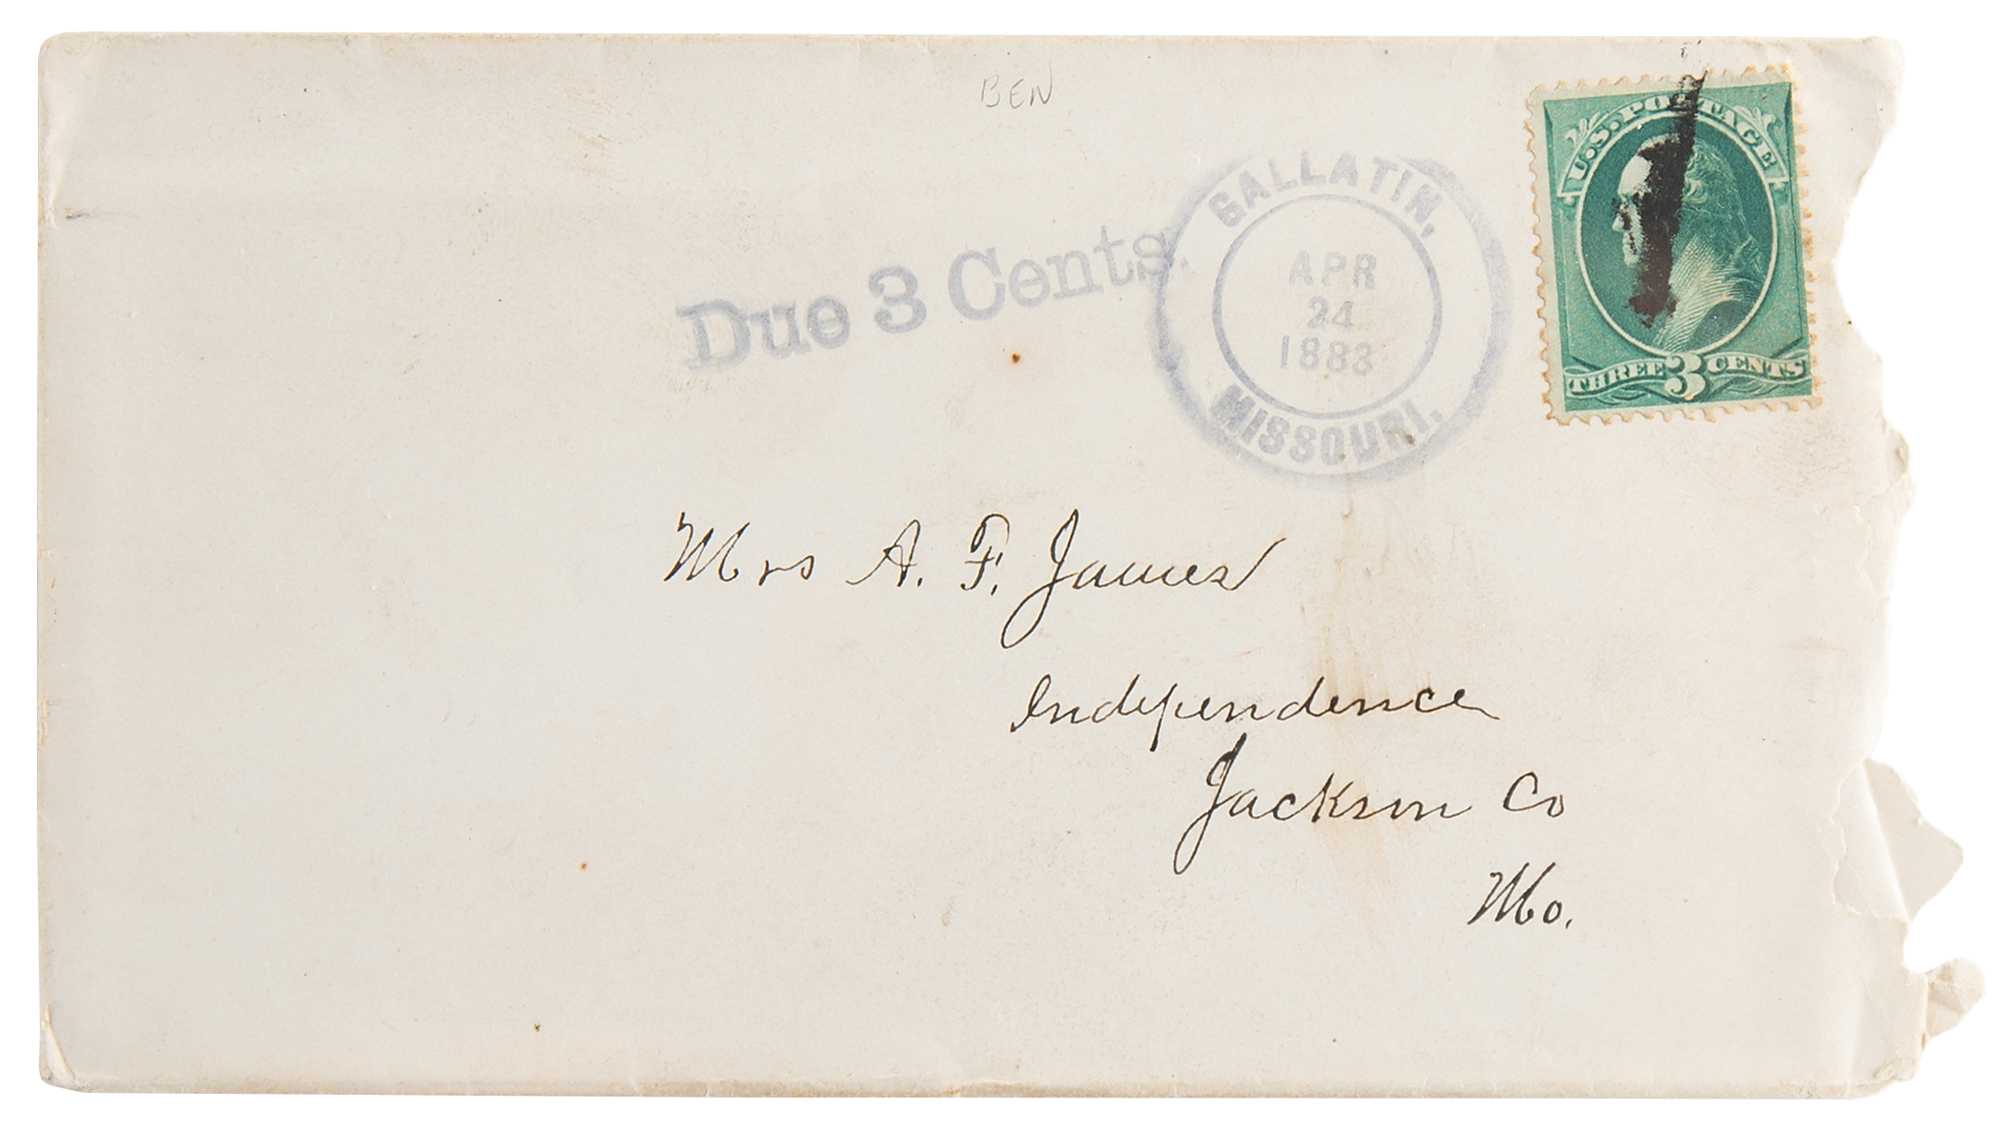 BEN
U.S. POSTAGE
THREE 3 CENTS
GALLATIN,
APR
24
1883
MISSOURI.
Due 3 Cents.
Mrs A. F. James
Independence
Jackson Co
Mo.